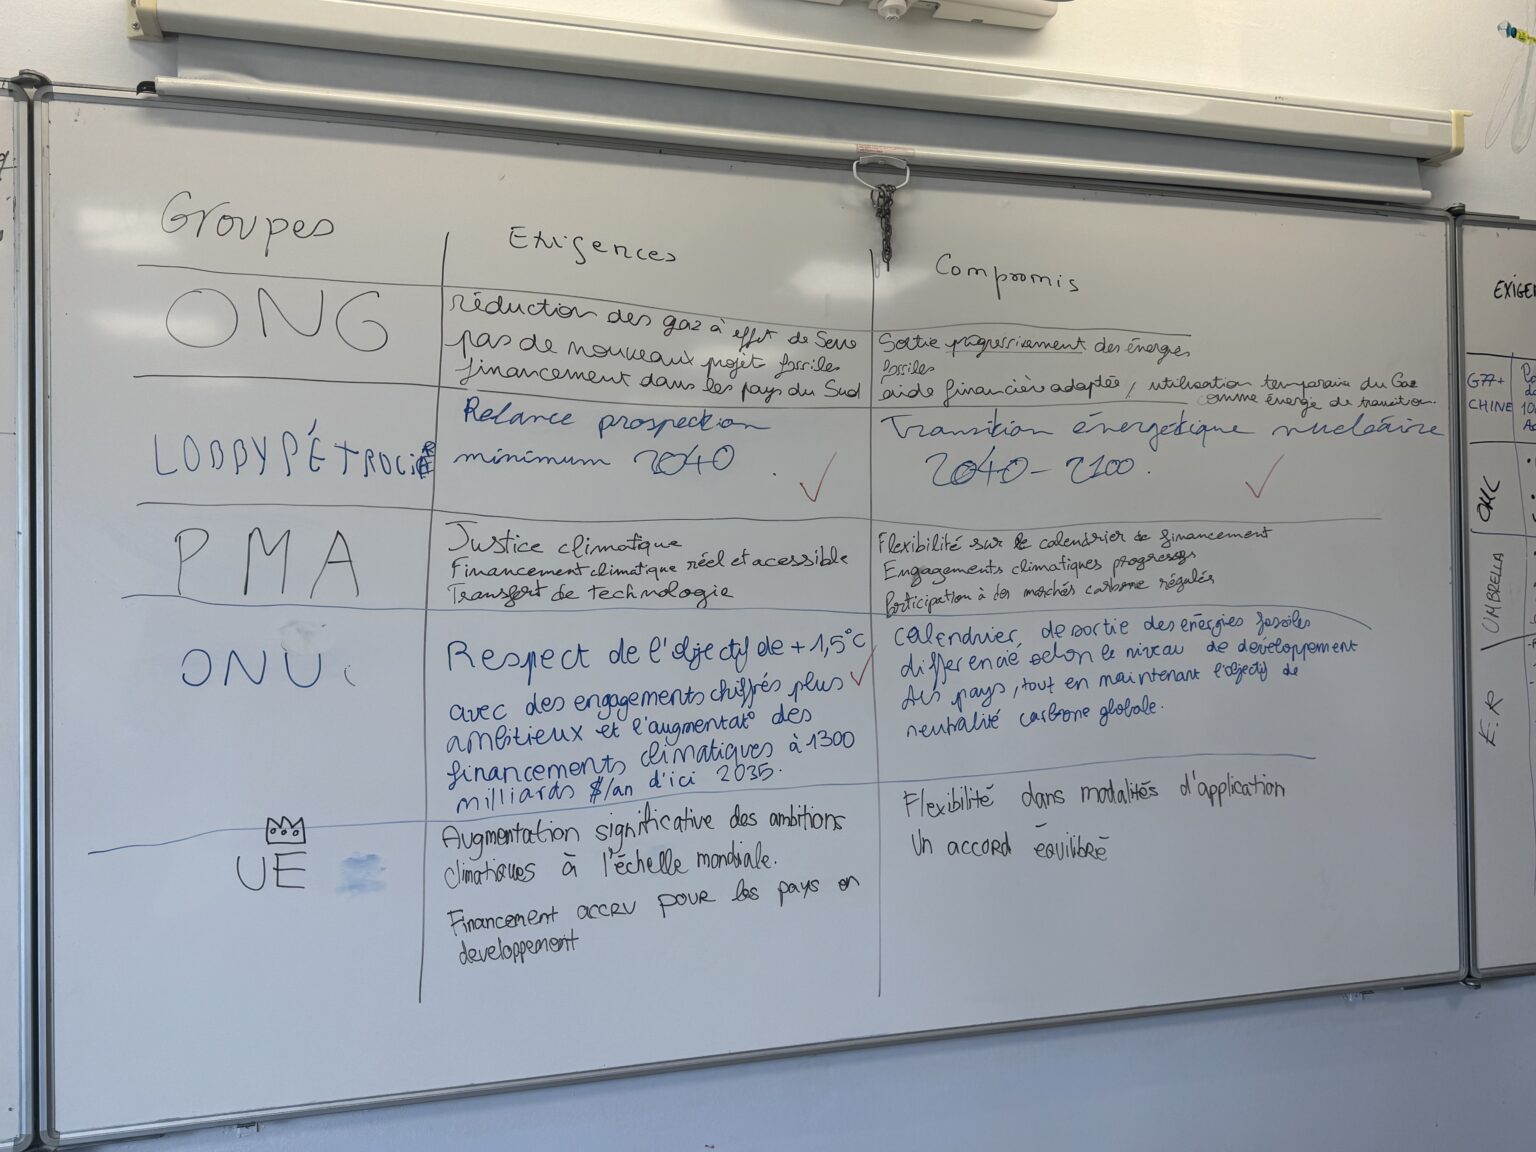 Groupes
Exigences
Compromis
ONG
réduction des gaz à effet de Serre
pas de nouveaux projet fossiles
financement dans les pays du Sud
Sortie progressivement des énergies
fossiles
aide financière adaptée, utilisation temporaire du Gaz
comme énergie de transition.
LOBBY PÉTROCIER
Relance prospection
minimum 2040
Transition énergétique nucléaire
2040-2100.
PMA
Justice climatique
Financement climatique réel et acessible
Transfert de technologie
Flexibilité sur le calendrier de financement
Engagements climatiques progressifs
Participation à des marchés carbone régulés
ONU
Respect de l'objectif de +1,5°C
avec des engagements chiffrés plus
ambitieux et l'augmentat° des
financements climatiques à 1300
milliards $/an d'ici 2035.
calendrier de sortie des énergies fossiles
différencié selon le niveau de développement
des pays, tout en maintenant l'objectif de
neutralité carbone globale.
UE
Augmentation significative des ambitions
climatiques à l'échelle mondiale.
Financement accru pour les pays en
developpement
Flexibilité dans modalités d'application
Un accord équilibré
EXIGEN
G77+
CHINE
OMC
UMBRELLA
E.R